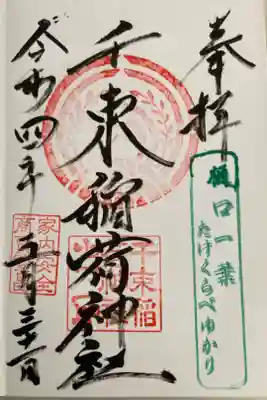 奉拝
樋口一葉
たけくらべゆかり
千束稲荷神社
千束稲
令和四年
五月三十一日
家内安全